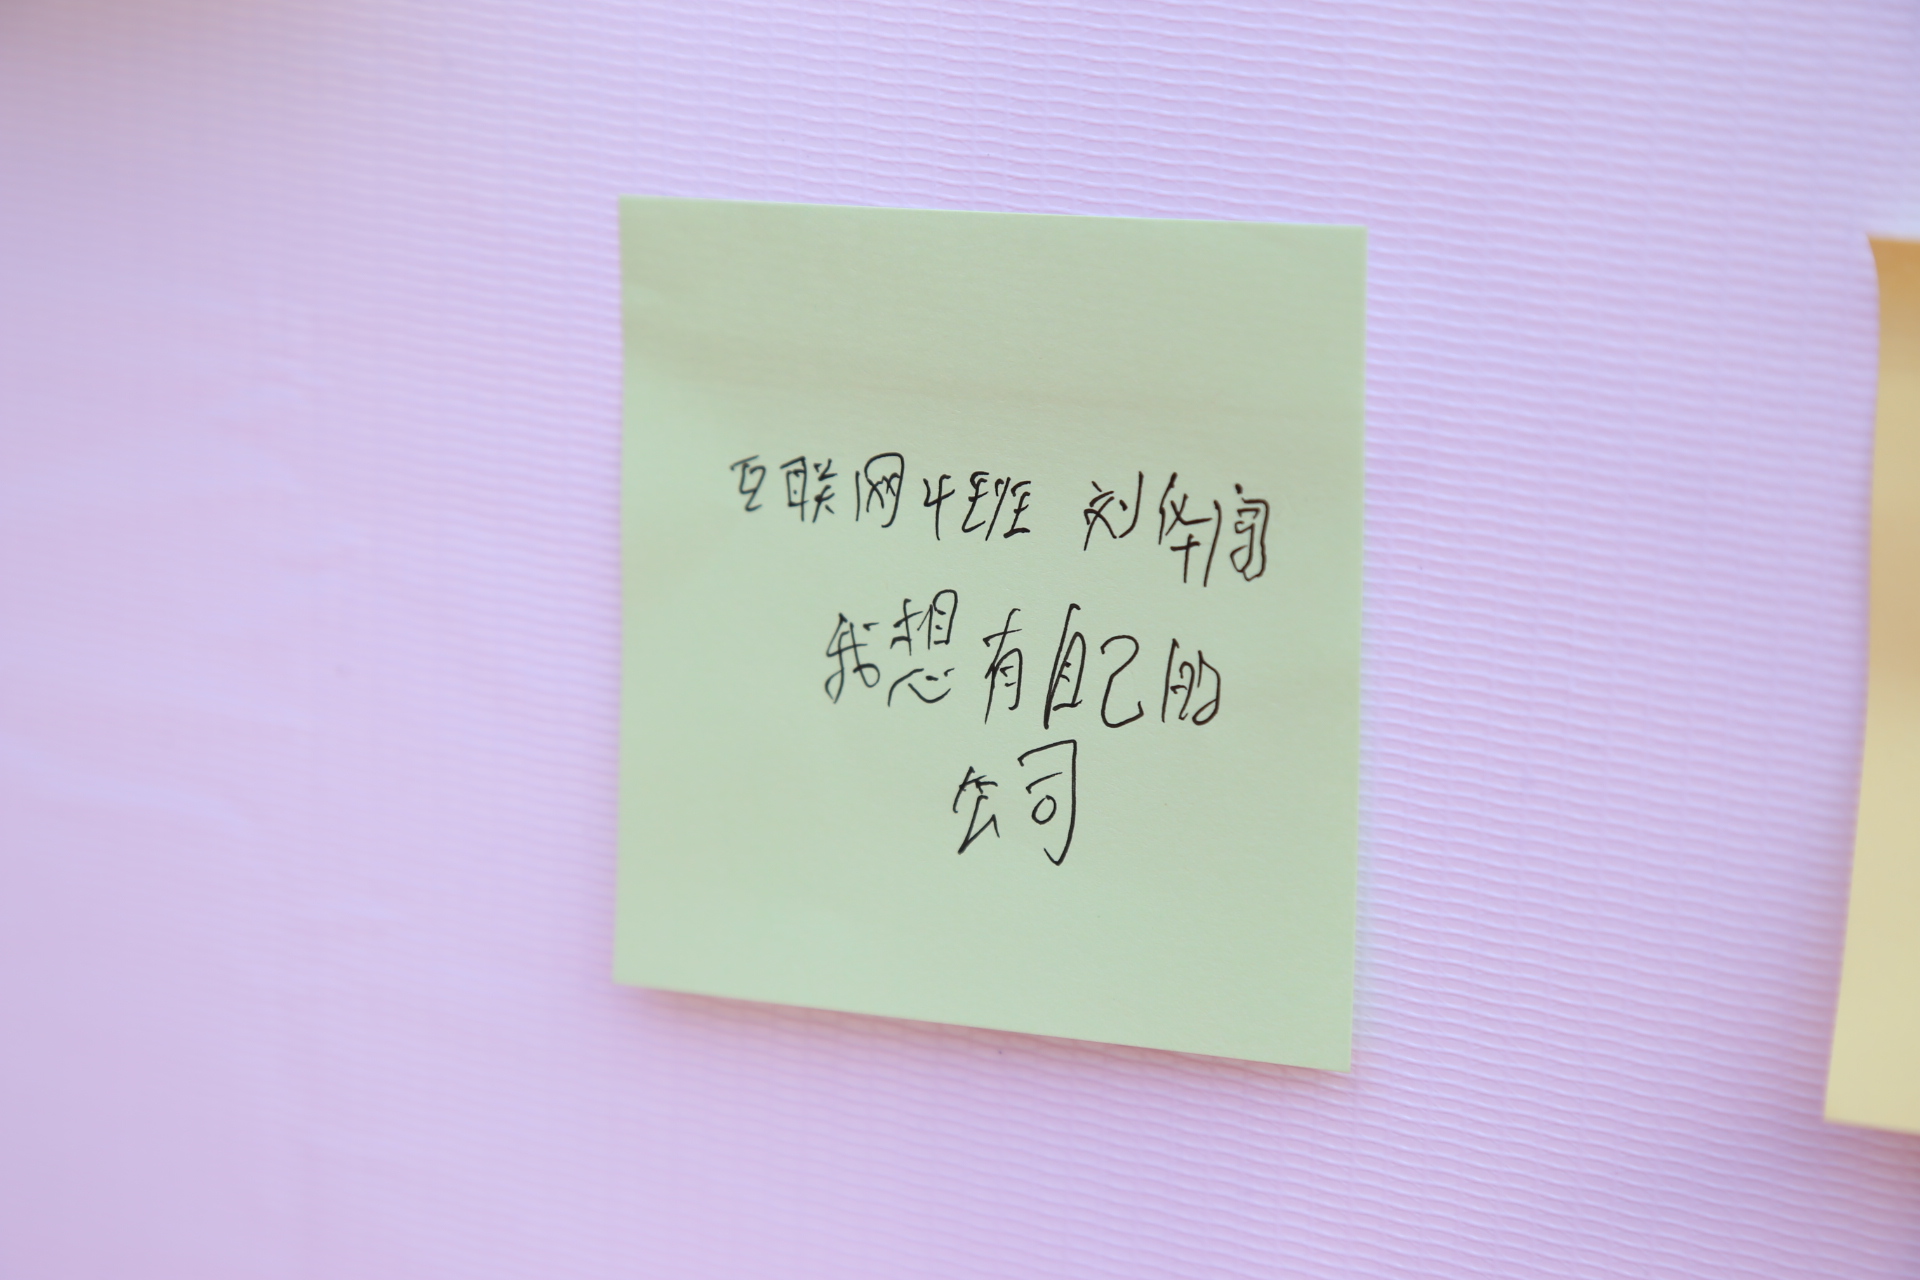 互联网4班 刘华
我想有自己的
公司